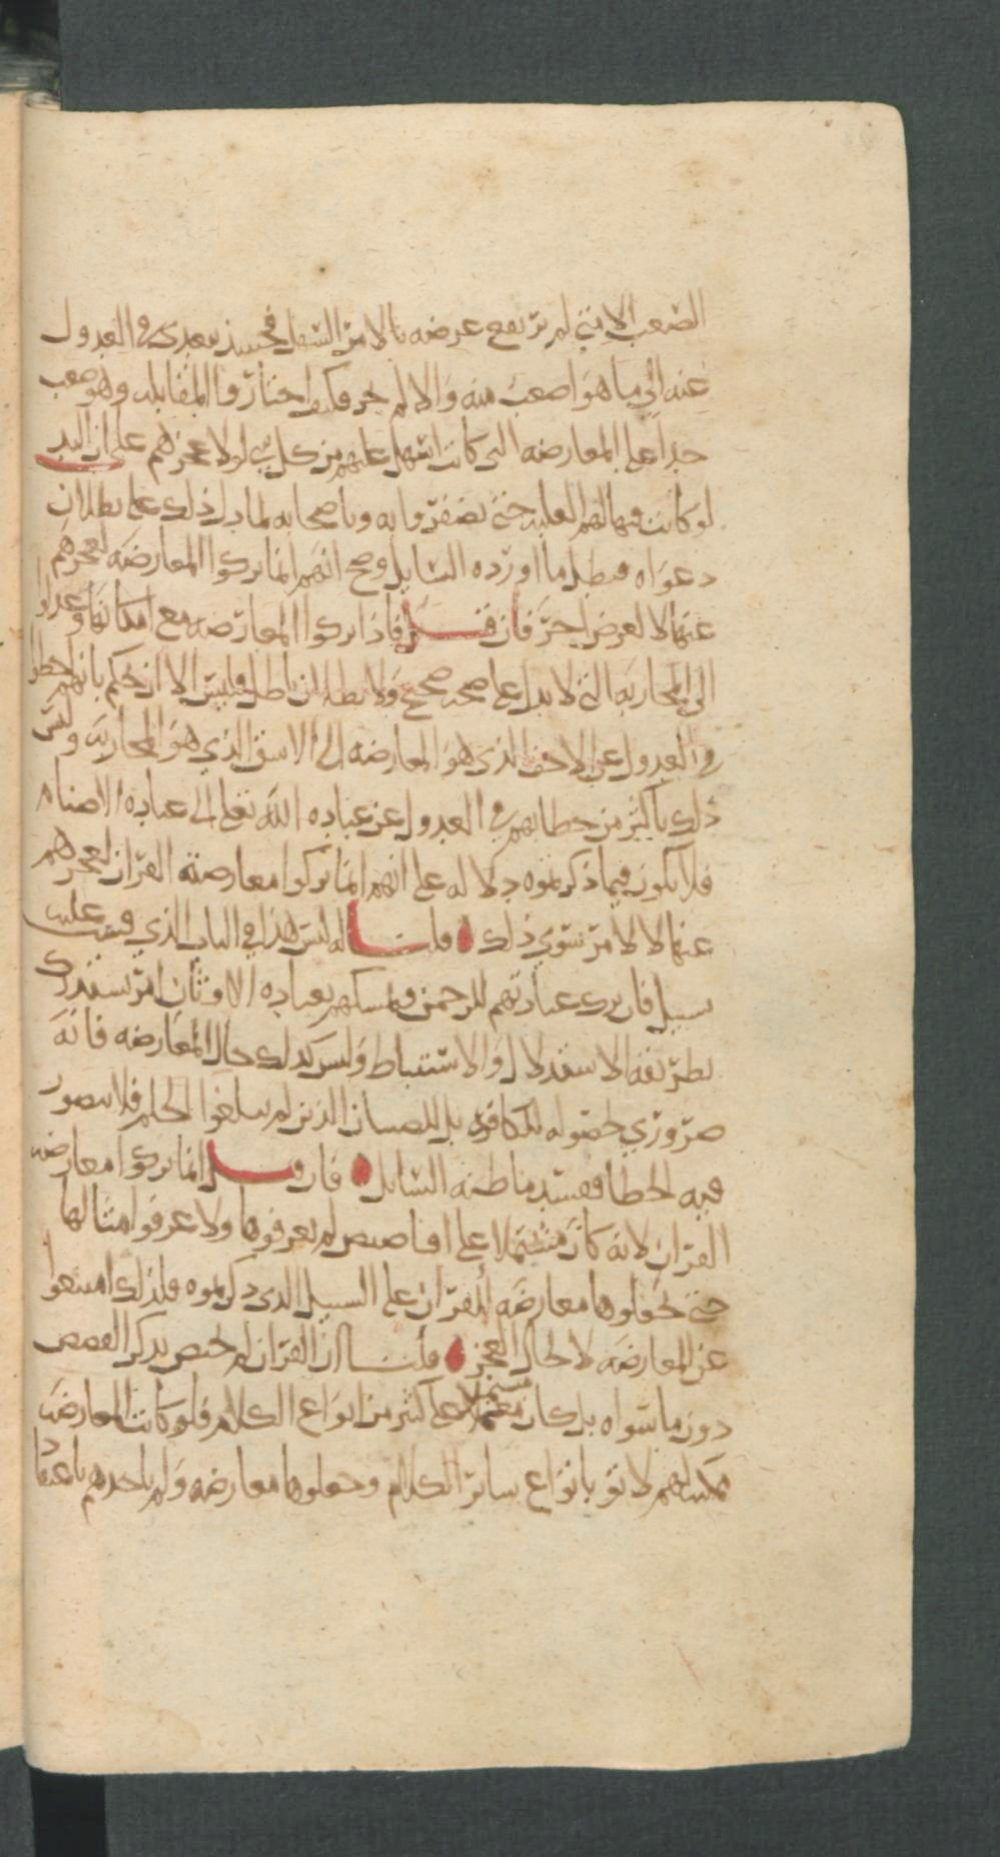 الصعب الا متى لم يرتفع غرضه بالامر السهل فحينئذ يعدى في العدول
عنه الى ما هو اصعب منه والا لم يجز فكيف اختاروا المقابله وهو صعب
جدا على المعارضه التي كانت اسهل عليهم من كل شي لولا عجزهم على ان
لو كانت فيها لهم الغلبه حتى يضفروا به وباصحابه لما دل ذلك على بطلان
دعواه فبطل ما اورده السايل وصح انهم انما تركوا المعارضه لعجزهم
عنها لا لغرض اخر فان قيل فاذا تركوا المعارضه مع امكانها وعدلوا
الى المحاربه التي لا تدل على صحه صحيح ولا بطلان باطل فليس الا ان نحكم بانهم اخطوا
في العدول عن الاخف الذي هو المعارضه الى الاشق الذي هو المحاربه وليس
ذلك باكثر من خطابهم في العدول عن عباده الله تعلى الى عباده الاصنام
فلا يكون فيما ذكرتموه دلاله على انهم انما تركوا معارضة القران لعجزهم
عنها لا لامر سوى ذلك قلنا انه ليس هذا في الباب الذي قست عليه
سبيل فان ترك عبادتهم للرحمن وتمسكهم بعباده الاوثان امر يستدرك
بطريقه الاستدلال والاستنباط وليس كذلك حال المعارضه فانه
ضروري حصوله للكافه بل للصبيان الذين لم يبلغوا الحلم فلا يتصور
فيه الخطا ففسد ما ظنه السايل فان قيل انما تركوا معارضه
القران لانه كان مشتملا على اقاصيص لم يعرفوها ولا عرفوا امثالها
حتى يجعلوها معارضه للقران على السبيل الذي ذكرتموه فلذلك امتنعوا
عن المعارضه لا لحال العجز قلنا ان القران لم يختص بذكر القصص
دون ما سواه بل كان مشتملا على كثير من انواع الكلام فلو كانت المعارضه
ممكنه لهم لاتو بانواع ساير الكلام وجعلوها معارضه ولم ياخذهم باعتقاد